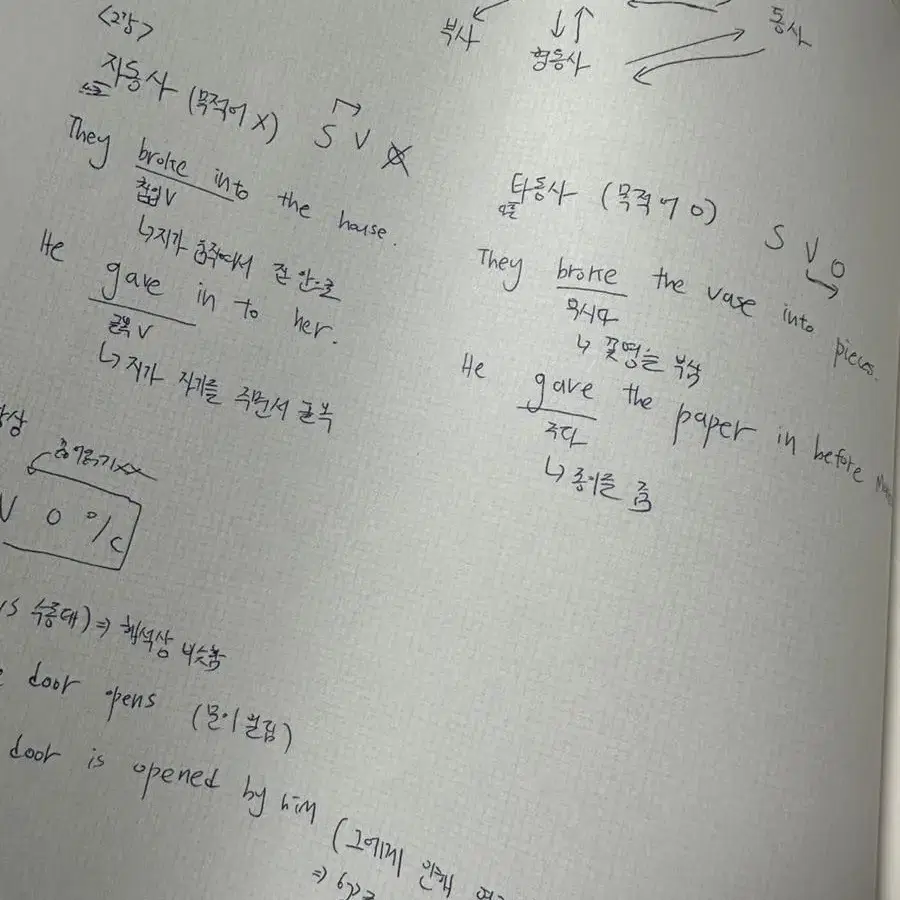 <2강>
부사
형용사
동사
자동사 (목적어 X) S V O
They broke into the house.
침입 V
↳지가 움직여서 집 안으로
He gave in to her.
굴복 V
↳ 지가 자기를 주면서 굴복
타동사 (목적어 O) S V O
They broke the vase into pieces.
부시다
↳ 꽃병을 부숨
He gave the paper in before
주다
↳ 종이를 줌
V O %C
수동태) ⇒ 해석상 비슷함
door opens (문이 열림)
door is opened by him (그에게 인해
⇒